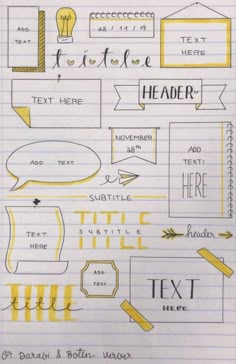 ADD
TEXT
28 / 11 / ...
TEXT
HERE
title
TEXT HERE
HEADER
NOVEMBER
28th
ADD
TEXT!
HERE
ADD TEXT
SUBTITLE
TITLE
SUBTITLE
header
TEXT
HERE
ADD
TEXT
title
TEXT
HERE